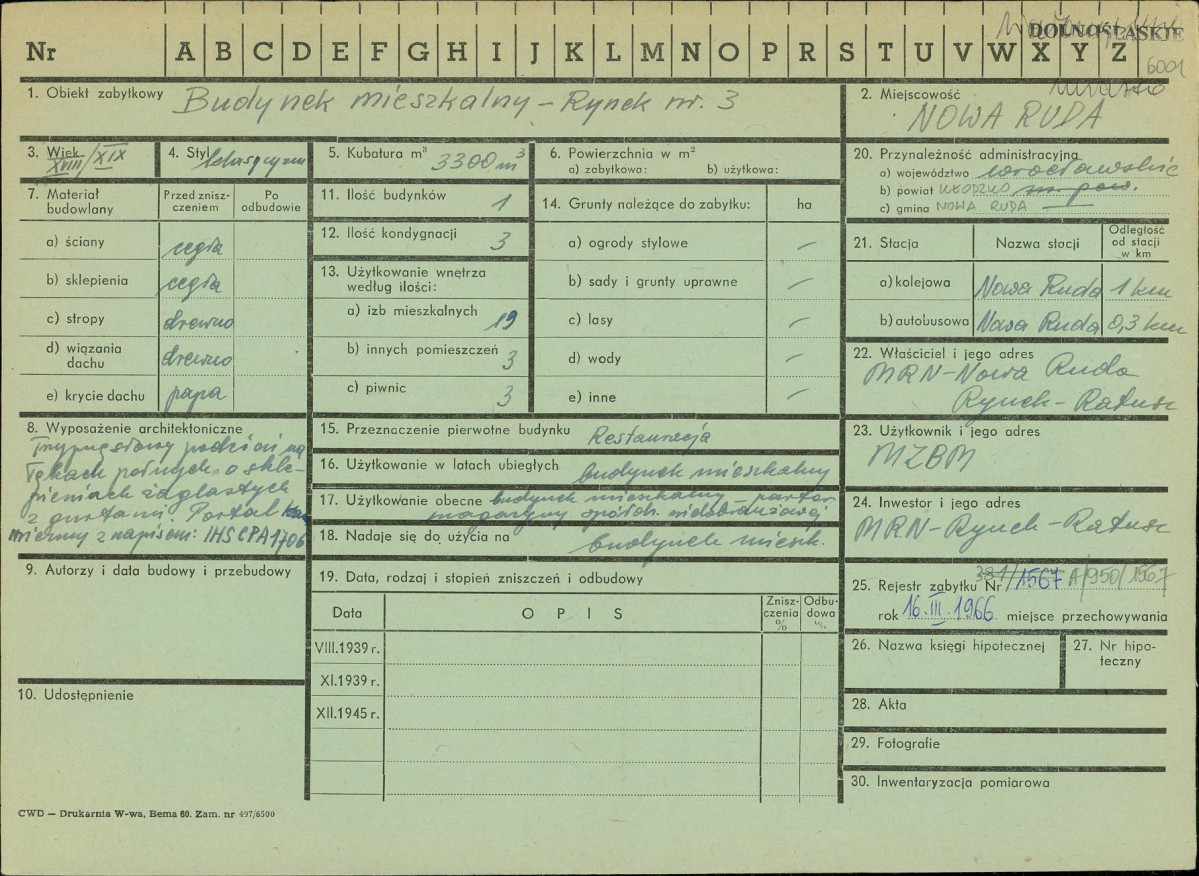 Nr A B C D E F G H I J K L M N O P R S T U V W X Y Z
DOLNOŚLĄSKIE
6001
1. Obiekt zabytkowy Budynek mieszkalny – Rynek nr. 3
2. Miejscowość
NOWA RUDA
3. Wiek
XVIII/XIX
4. Styl klasycyzm
5. Kubatura m³ 3300 m³
6. Powierzchnia w m²
a) zabytkowa: b) użytkowa:
7. Materiał budowlany
Przed zniszczeniem
Po odbudowie
a) ściany cegła
b) sklepienia cegła
c) stropy drewno
d) wiązania dachu drewno
e) krycie dachu papa
8. Wyposażenie architektoniczne
Trzyprzęsłowy podcień na
łękach pełnych, o skle-
pieniach żaglastych
z gurtami. Portal ka
mienny z napisem: IHS CPA 1706
9. Autorzy i data budowy i przebudowy
10. Udostępnienie
11. Ilość budynków 1
12. Ilość kondygnacji 3
13. Użytkowanie wnętrza
według ilości:
a) izb mieszkalnych 19
b) innych pomieszczeń 3
c) piwnic 3
14. Grunty należące do zabytku: ha
a) ogrody stylowe –
b) sady i grunty uprawne –
c) lasy –
d) wody –
e) inne –
15. Przeznaczenie pierwotne budynku Restauracja
16. Użytkowanie w latach ubiegłych budynek mieszkalny
17. Użytkowanie obecne budynek mieszkalny – parter
magazyny spółdz.
18. Nadaje się do użycia na budynek mieszk.
19. Data, rodzaj i stopień zniszczeń i odbudowy
Data OPIS Zniszczenia % Odbudowa %
VIII.1939 r.
XI.1939 r.
XII.1945 r.
20. Przynależność administracyjna
a) województwo wrocławskie
b) powiat KŁODZKO m. pow.
c) gmina NOWA RUDA —
21. Stacja Nazwa stacji Odległość od stacji w km
a) kolejowa Nowa Ruda 1 km
b) autobusowa Nowa Ruda 0,3 km
22. Właściciel i jego adres
MRN – Nowa Ruda
Rynek – Ratusz
23. Użytkownik i jego adres
MZBM
24. Inwestor i jego adres
MRN – Rynek – Ratusz
25. Rejestr zabytku Nr 381/1567 A/950/1567
rok 16.III.1966 miejsce przechowywania
26. Nazwa księgi hipotecznej
27. Nr hipoteczny
28. Akta
29. Fotografie
30. Inwentaryzacja pomiarowa
CWD — Drukarnia W-wa, Bema 60. Zam. nr 497/6500